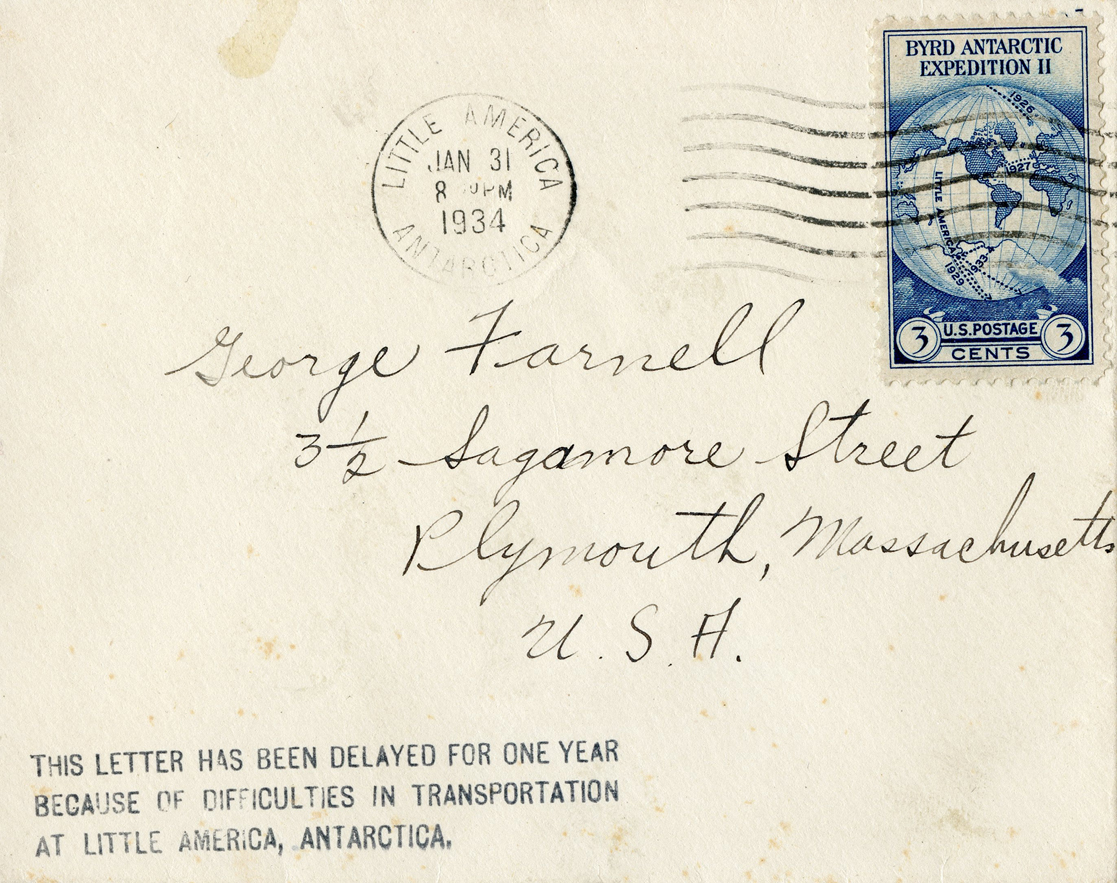 BYRD ANTARCTIC
EXPEDITION II
1926
1927
LITTLE AMERICA
1929
1933-4
U.S. POSTAGE
3 CENTS 3
LITTLE AMERICA
JAN 31
8 PM
1934
ANTARCTICA
George Farnell
3½ Sagamore Street
Plymouth, Massachusetts
U. S. A.
THIS LETTER HAS BEEN DELAYED FOR ONE YEAR
BECAUSE OF DIFFICULTIES IN TRANSPORTATION
AT LITTLE AMERICA, ANTARCTICA.